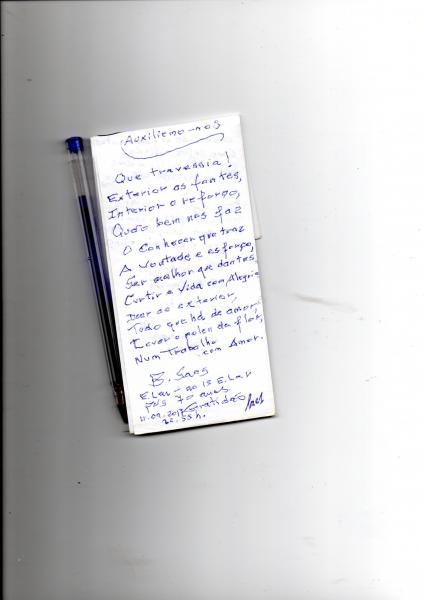 Auxiliemo-nos
Que travessia!
Exterior as fontes,
Interior o reforço,
Quão bem nos faz
O Conhecer que traz
A voutade, e esforço,
Ser melhor que dantes,
Curtir a Vida com Alegria
Doar ao exterior,
Todo que há de amor,
Levar o polen da flor,
Num Trabalho com Amor.
E. Lar
70 anos
Gratidão